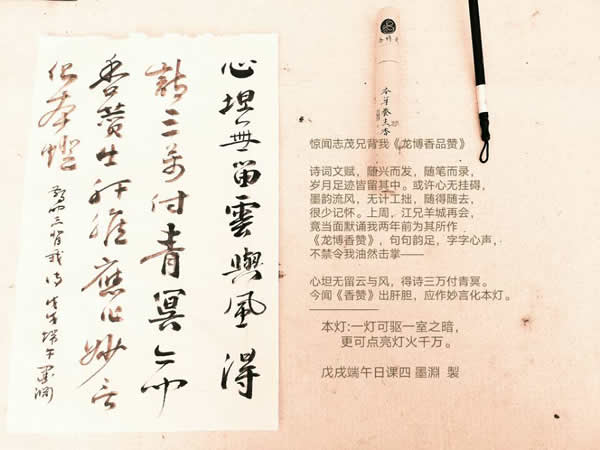 心坦無留雲與風得
詩三萬付青冥今聞
香贊出肝膽應作妙言
化本燈
惊闻志茂兄背我《龙博香品赞》
诗词文赋，随兴而发，随笔而录，
岁月足迹皆留其中。或许心无挂碍，
墨韵流风，无计工拙，随得随去，
很少记怀。上周，江兄羊城再会，
竟当面默诵我两年前为其所作
《龙博香赞》，句句韵足，字字心声，
不禁令我油然击掌——
心坦无留云与风，得诗三万付青冥。
今闻《香赞》出肝胆，应作妙言化本灯。
本灯:一灯可驱一室之暗，
更可点亮灯火千万。
戊戌端午日课四 墨淵 製